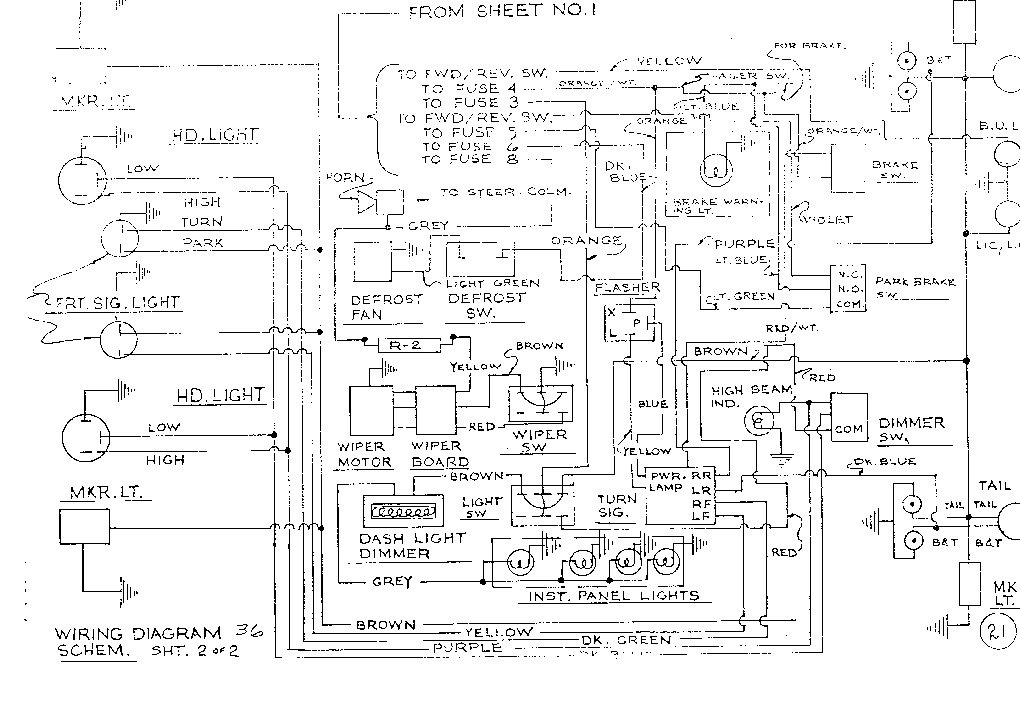 FROM SHEET NO.1
TO FWD/REV. SW.
TO FUSE 4
TO FUSE 3
TO FWD/REV. SW.
TO FUSE 5
TO FUSE 6
TO FUSE 8
YELLOW
FOR BRAKE
ORANGE/WT.
LT. BLUE
ORANGE
DK. BLUE
BRAKE WARN-
ING LT.
ORANGE/WT.
BRAKE
SW.
VIOLET
B&T
B.U.L
LIC. L
MKR. LT.
HD. LIGHT
LOW
HIGH
TURN
PARK
FRT. SIG. LIGHT
HD. LIGHT
LOW
HIGH
MKR. LT.
HORN
TO STEER. COLM.
GREY
ORANGE
LIGHT GREEN
DEFROST
FAN
DEFROST
SW.
FLASHER
X
P
PURPLE
LT. BLUE
LT. GREEN
N.C.
N.O.
COM.
PARK BRAKE
SW.
RED/WT.
BROWN
RED
R-2
YELLOW
BROWN
RED
WIPER
MOTOR
WIPER
BOARD
WIPER
SW
BLUE
YELLOW
HIGH BEAM
IND.
COM
DIMMER
SW.
DK. BLUE
BROWN
LIGHT
SW
TURN
SIG.
PWR.
LAMP
RR
LR
RF
LF
RED
DASH LIGHT
DIMMER
GREY
INST. PANEL LIGHTS
TAIL
TAIL
TAIL
B&T
B&T
MK
LT.
21
BROWN
YELLOW
DK. GREEN
PURPLE
WIRING DIAGRAM 36
SCHEM. SHT. 2 OF 2